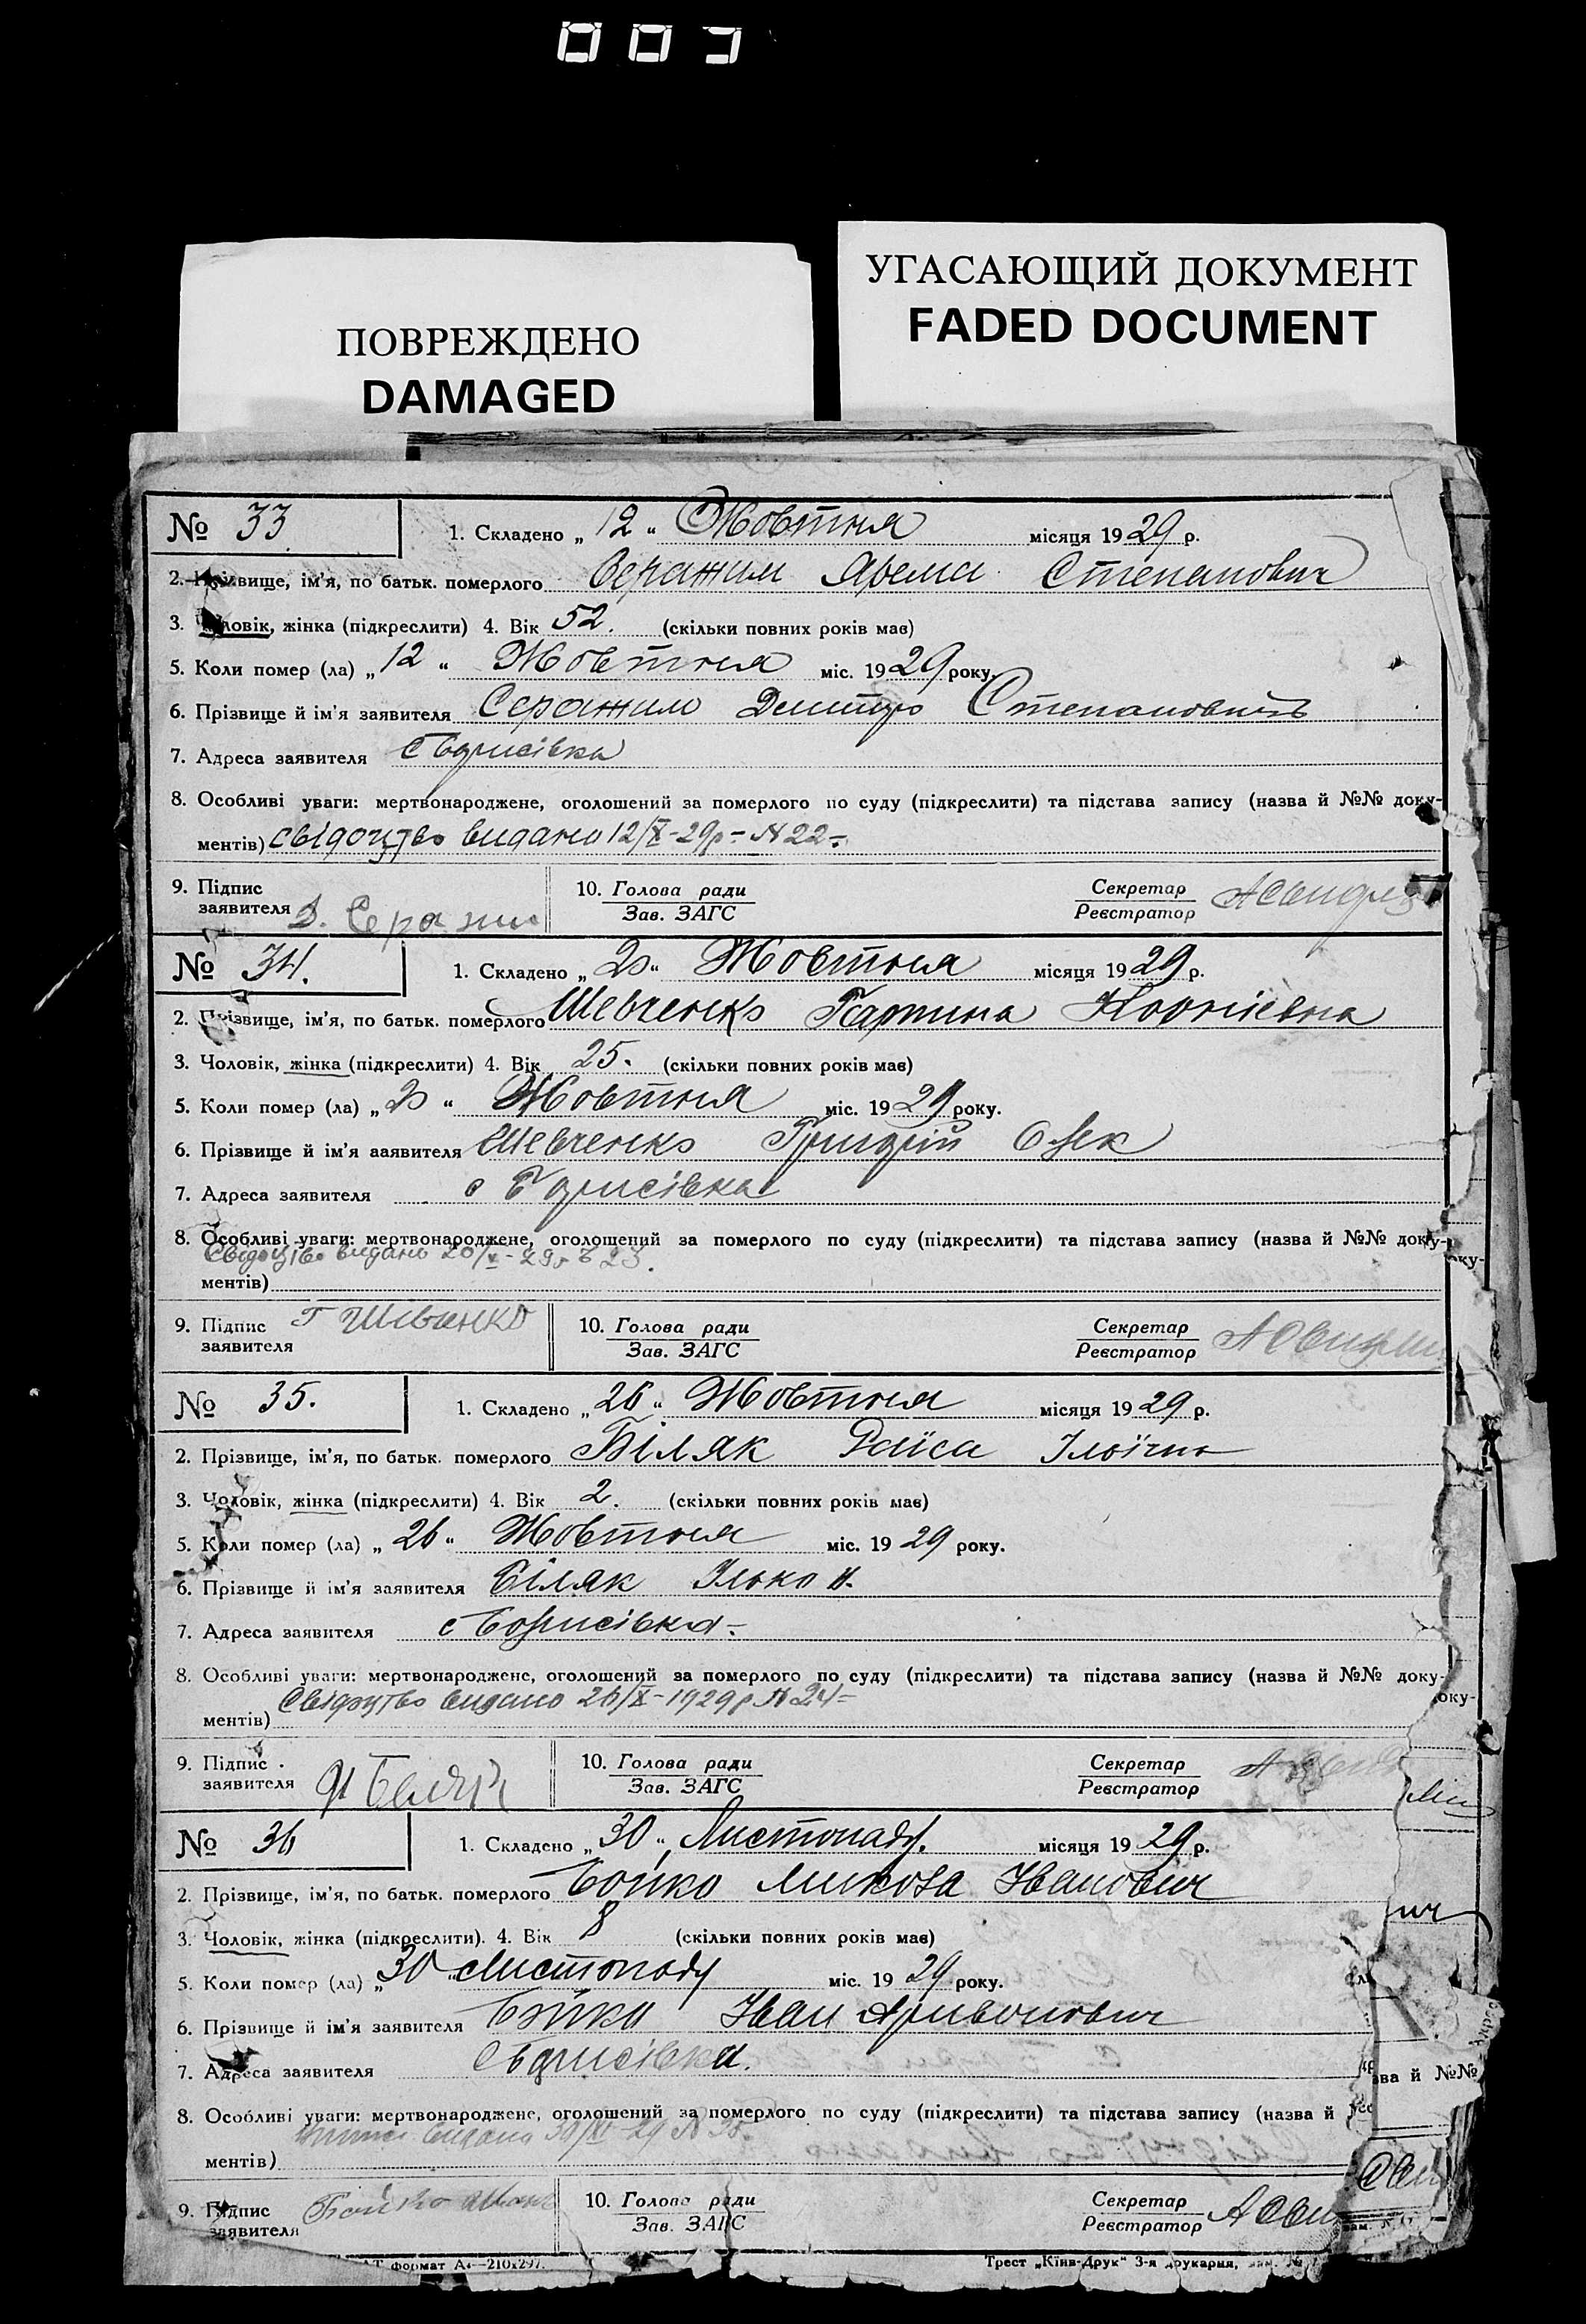 ПОВРЕЖДЕНО
DAMAGED
УГАСАЮЩИЙ ДОКУМЕНТ
FADED DOCUMENT
№ 33 1. Складено „12“ Жовтня місяця 1929 р.
2. Прізвище, ім'я, по батьк. померлого Серажим Ярема Степанович
3. Чоловік, жінка (підкреслити) 4. Вік 52. (скільки повних років має)
5. Коли помер (ла) „12“ Жовтня міс. 1929 року.
6. Прізвище й ім'я заявителя Серажим Дмитро Степанович
7. Адреса заявителя с Борисівка
8. Особливі уваги: мертвонароджене, оголошений за померлого по суду (підкреслити) та підстава запису (назва й №№ доку-
ментів) свідоцтво видано 12/X-29р- N 22-
9. Підпис заявителя Д. Серажим 10. Голова ради Секретар
Зав. ЗАГС Реєстратор
№ 34. 1. Складено „20“ Жовтня місяця 1929 р.
2. Прізвище, ім'я, по батьк. померлого Шевченко Корніевна
3. Чоловік, жінка (підкреслити) 4. Вік 25. (скільки повних років має)
5. Коли помер (ла) „20“ Жовтня міс. 1929 року.
6. Прізвище й ім'я заявителя Шевченко Григорій Олек
7. Адреса заявителя с Борисівка
8. Особливі уваги: мертвонароджене, оголошений за померлого по суду (підкреслити) та підстава запису (назва й №№ доку-
Свідоцтво видано 20/X-29р 23.
ментів)
9. Підпис заявителя Г Шевченко 10. Голова ради Секретар
Зав. ЗАГС Реєстратор
№ 35. 1. Складено „26“ Жовтня місяця 1929 р.
2. Прізвище, ім'я, по батьк. померлого Біляк Раїса Іллїчна
3. Чоловік, жінка (підкреслити) 4. Вік 2. (скільки повних років має)
5. Коли помер (ла) „26“ Жовтня міс. 1929 року.
6. Прізвище й ім'я заявителя Біляк Ілько И.
7. Адреса заявителя с Борисівка-
8. Особливі уваги: мертвонароджене, оголошений за померлого по суду (підкреслити) та підстава запису (назва й №№ доку-
Свідоцтво видано 26/X-1929р N 24-
ментів)
9. Підпис заявителя 10. Голова ради Секретар
Зав. ЗАГС Реєстратор
№ 36 1. Складено „30“ Листопаду. місяця 1929 р.
2. Прізвище, ім'я, по батьк. померлого Бойко Микола Іванович
3. Чоловік, жінка (підкреслити). 4. Вік 8 (скільки повних років має)
5. Коли помер (ла) „30“ Листопаду міс. 1929 року.
6. Прізвище й ім'я заявителя Бойко Іван
7. Адреса заявителя с Борисівка.
8. Особливі уваги: мертвонароджене, оголошений за померлого по суду (підкреслити) та підстава запису (назва й
видано 30/XI-29
ментів)
9. Підпис заявителя Бойко 10. Голова ради Секретар
Зав. ЗАГС Реєстратор
формат А4—210х297. Трест „Київ-Друк“ 3-я друкарня,